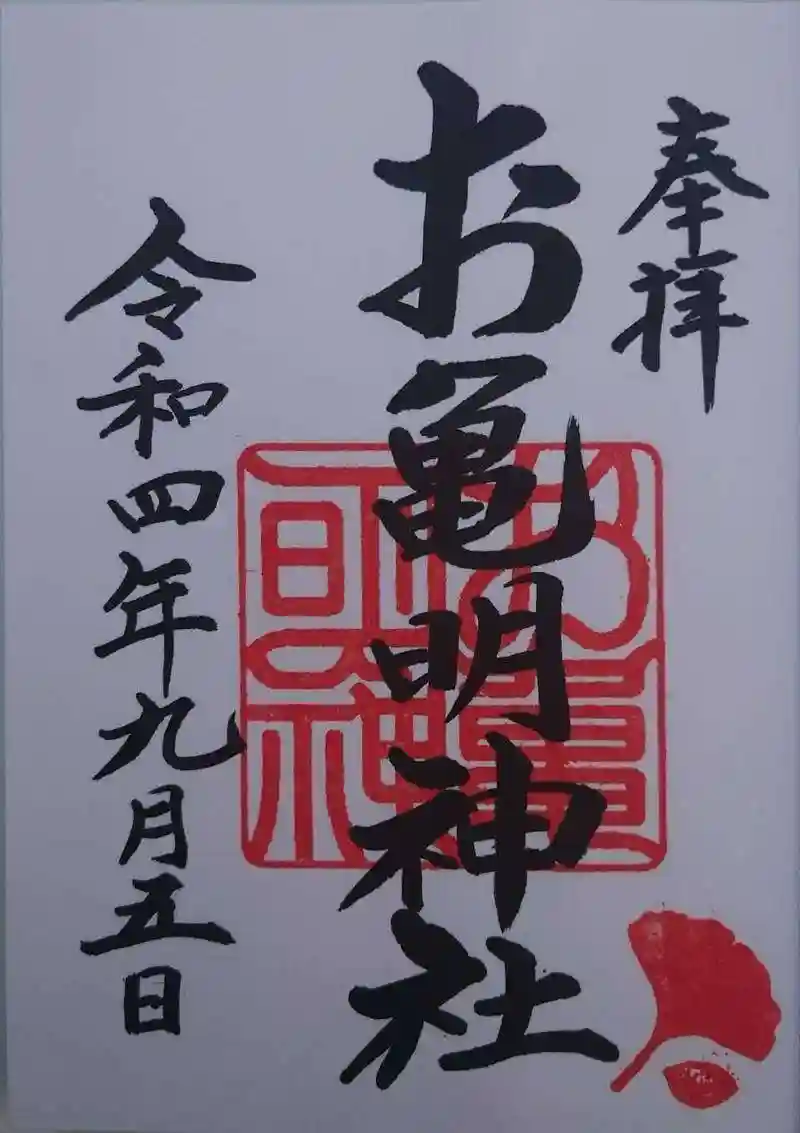 奉拝
お亀明神社
令和四年九月五日